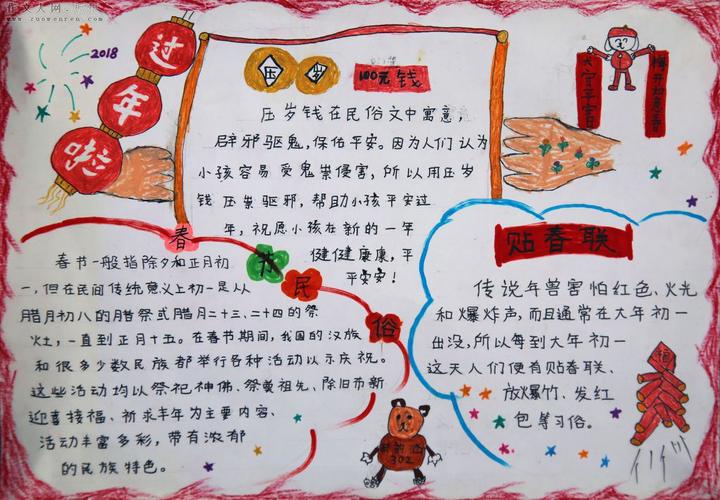 www.zuowenren.com
2018
过
年
啦
压岁
100元钱
压岁钱在民俗文中寓意，
辟邪驱鬼，保佑平安。因为人们认为
小孩容易受鬼祟侵害，所以用压岁
钱压祟驱邪，帮助小孩平安过
年，祝愿小孩在新的一年
健健康康，平
平安安！
春节民俗
春节一般指除夕和正月初
一，但在民间传统意义上初一是从
腊月初八的腊祭或腊月二十三、二十四的祭
灶，一直到正月十五。在春节期间，我国的汉族
和很多少数民族都举行各种活动以示庆祝。
这些活动均以祭祀神佛、祭奠祖先、除旧布新
迎喜接福、祈求丰年为主要内容、
活动丰富多彩，带有浓郁
的民族特色。
贴春联
传说年兽害怕红色、火光
和爆炸声，而且通常在大年初一
出没，所以每到大年初一
这天人们便有贴春联、
放爆竹、发红
包等习俗。
302